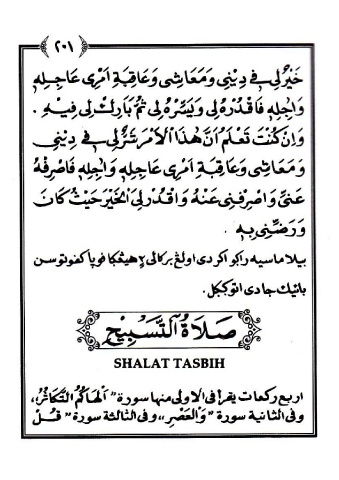 ٢٠١
خَيْرٌ لِي فِي دِيْنِي وَمَعَاشِي وَعَاقِبَةِ أَمْرِي عَاجِلِهِ
وَآجِلِهِ فَاقْدُرْهُ لِي وَيَسِّرْهُ لِي ثُمَّ بَارِكْ لِي فِيهِ .
وَإِنْ كُنْتَ تَعْلَمُ أَنَّ هٰذَا الْأَمْرَ شَرٌّ لِي فِي دِيْنِي
وَمَعَاشِي وَعَاقِبَةِ أَمْرِي عَاجِلِهِ وَآجِلِهِ فَاصْرِفْهُ
عَنِّي وَاصْرِفْنِي عَنْهُ وَاقْدُرْ لِيَ الْخَيْرَ حَيْثُ كَانَ
وَرَضِّنِي بِهِ .
بيلا ماسيه راڬو اكر دى اولڠ بركالى٢ هيڠڬا فوپا كفوتوسن
باڬيك جادى اتو ڬڬل.
صَلَاةُ التَّسْبِيْحِ
SHALAT TASBIH
اربع ركعات يقرأ فى الاولى منها سورة "أَلْهَاكُمُ التَّكَاثُرُ"،
وفى الثانية سورة "وَالْعَصْرِ"، وفى الثالثة سورة "قُلْ